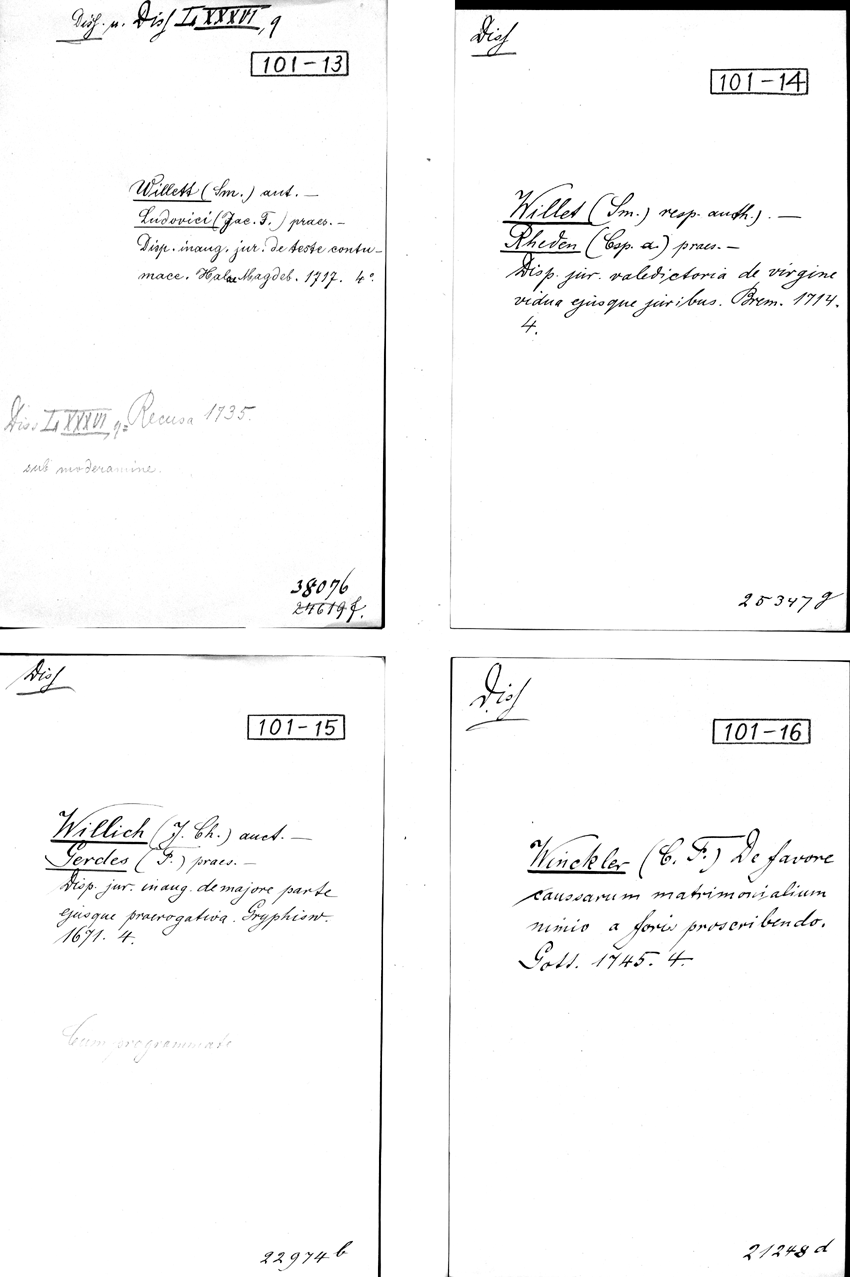 Diss. u. Diss L, XXXVI, 9
101-13
Willett (Sm.) aut. —
Ludovici (Jac. F.) praes. —
Disp. inaug. jur. de teste contu-
mace. Halae Magdeb. 1717. 4°.
Diss L, XXXVI, 9 = Recusa 1735.
sub moderamine.
38076
24619 f.
Diss
101-14
Willet (Sm.) resp. auth.). —
Rheden (Csp. a.) praes. —
Disp. jur. valedictoria de virgine
vidua ejusque juribus. Brem. 1714.
4.
25347 g
Diss
101-15
Willich (J. Ch.) auct. —
Gerdes (F.) praes. —
Disp. jur. inaug. de majore parte
ejusque praerogativa. Gryphisw.
1671. 4.
Cum programmate
22974 b
Diss
101-16
Winckler (C. F.) De favore
caussarum matrimonialium
nimio a foris proscribendo.
Gott. 1745. 4.
21248 d